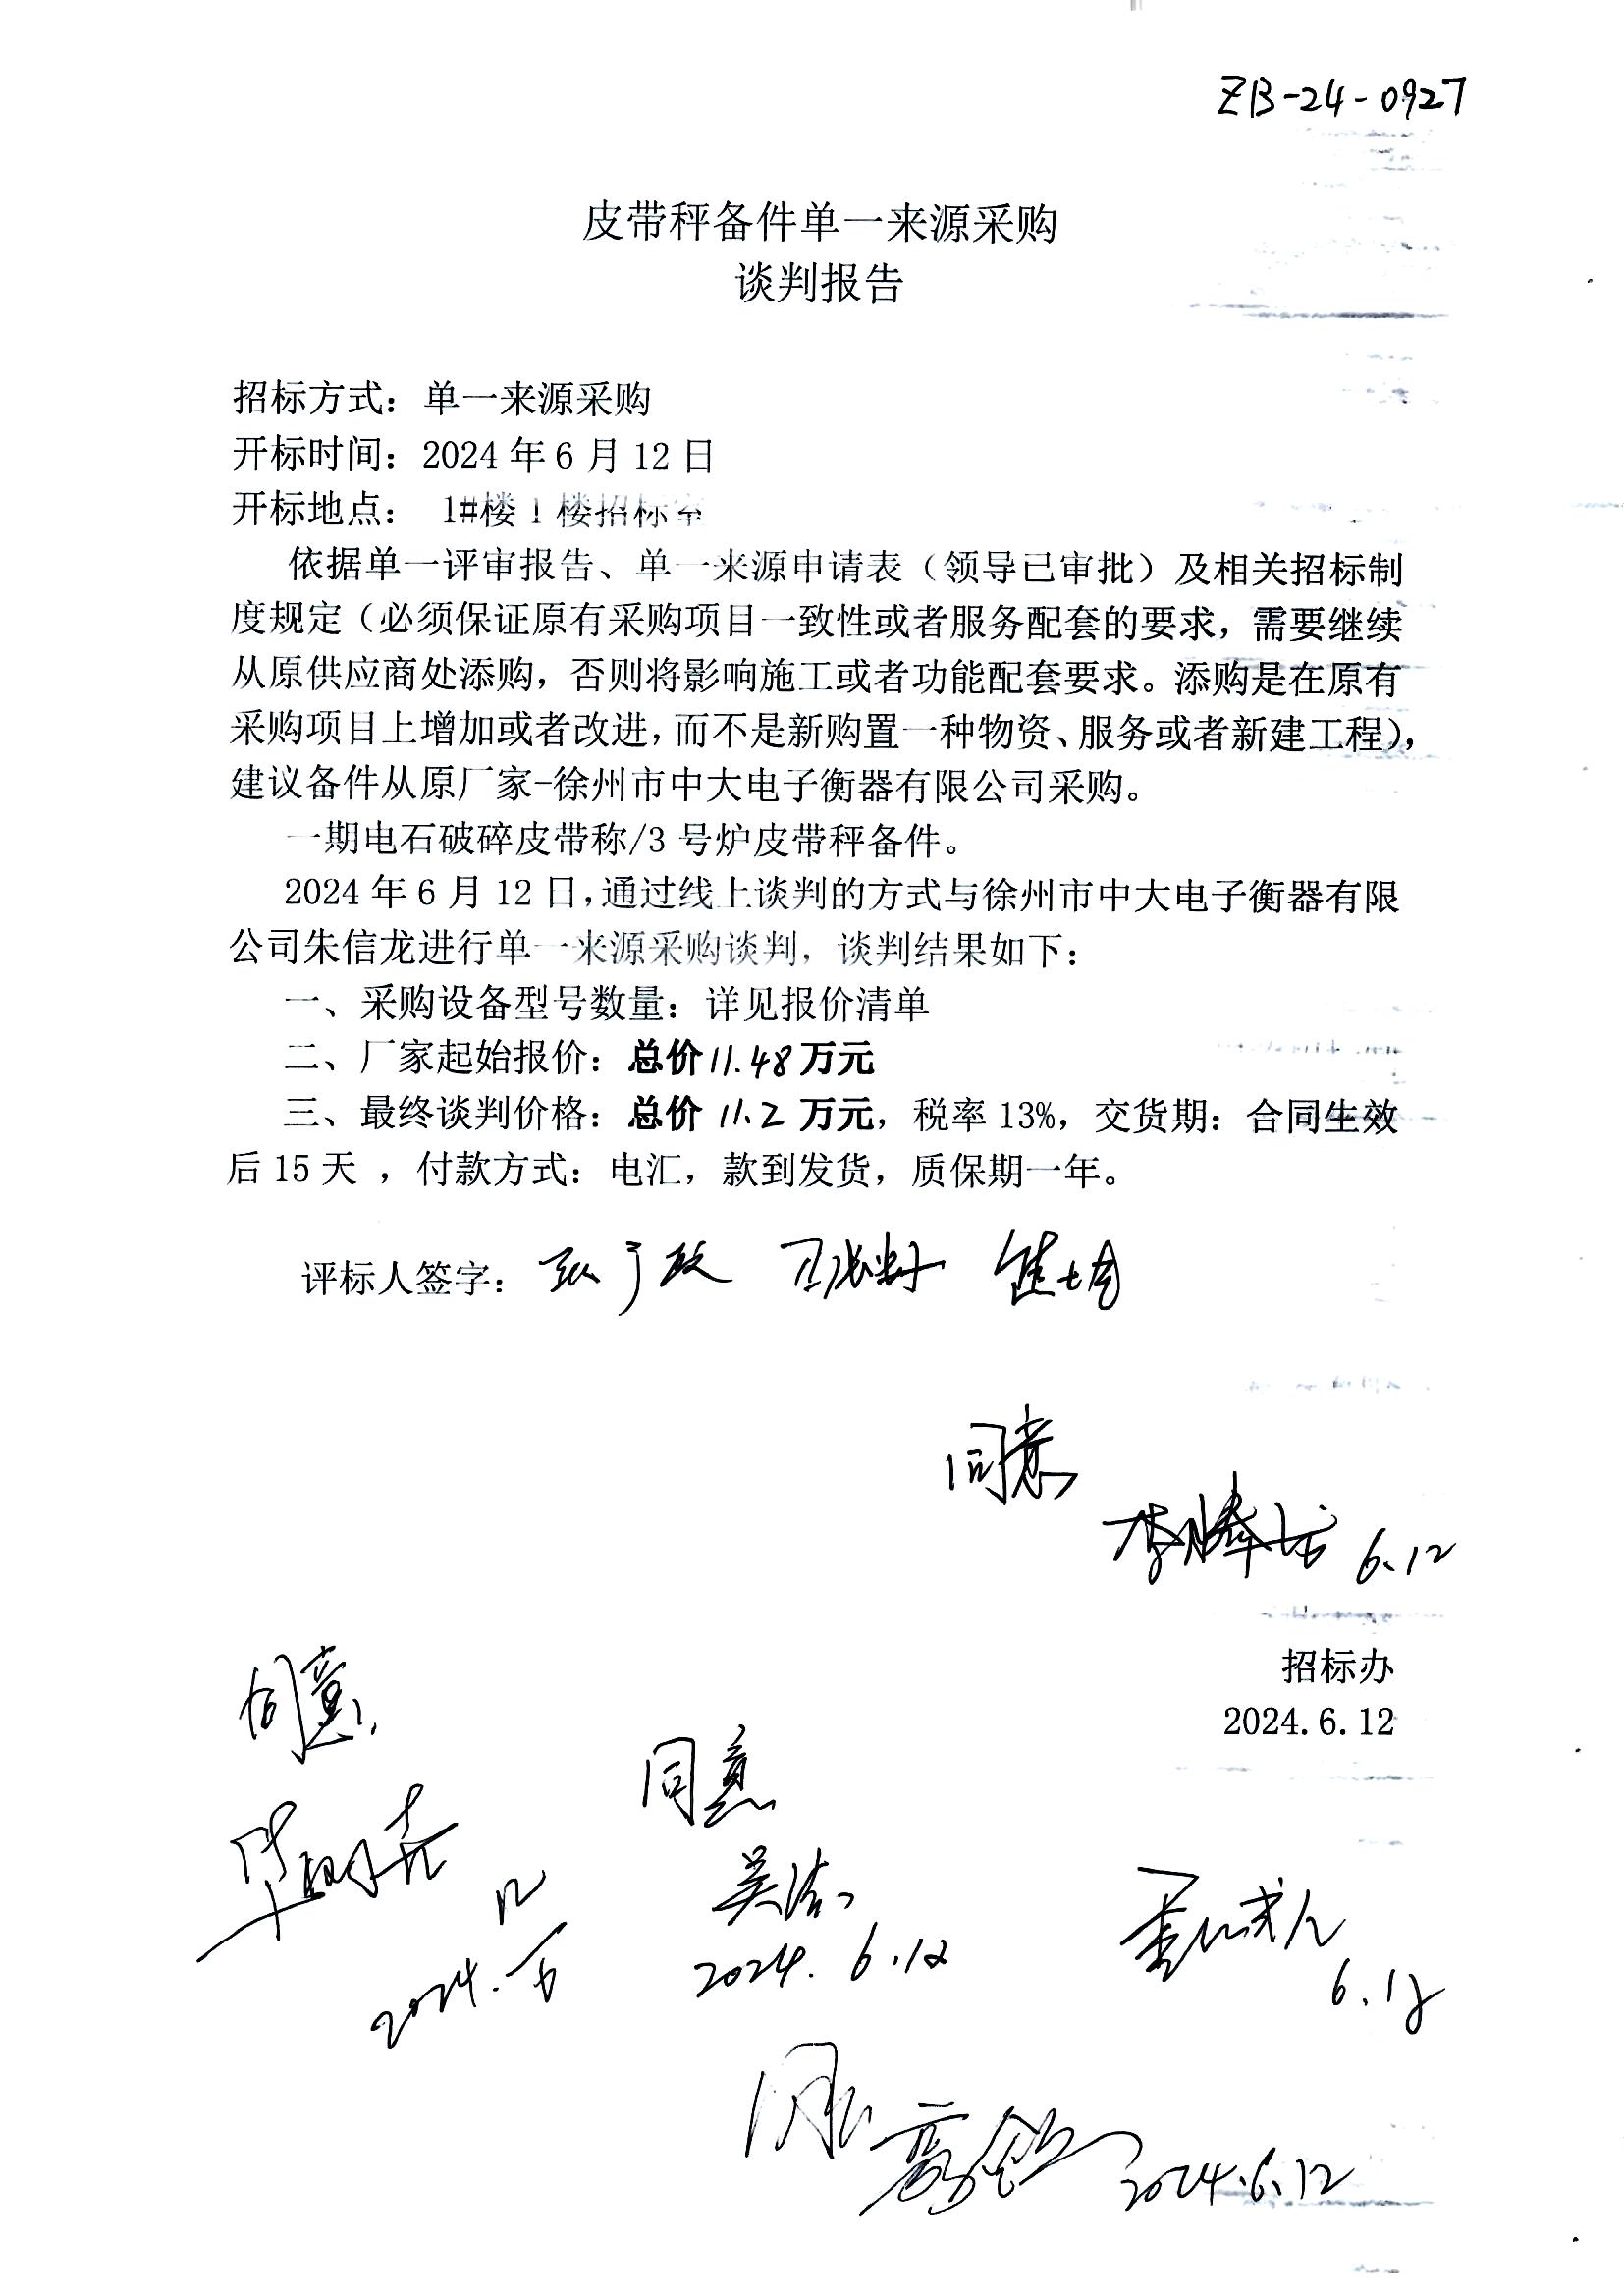 ZB-24-0927
皮带秤备件单一来源采购
谈判报告
招标方式：单一来源采购
开标时间：2024年6月12日
开标地点： 1#楼1楼招标室
依据单一评审报告、单一来源申请表（领导已审批）及相关招标制
度规定（必须保证原有采购项目一致性或者服务配套的要求，需要继续
从原供应商处添购，否则将影响施工或者功能配套要求。添购是在原有
采购项目上增加或者改进，而不是新购置一种物资、服务或者新建工程），
建议备件从原厂家-徐州市中大电子衡器有限公司采购。
一期电石破碎皮带称/3号炉皮带秤备件。
2024年6月12日，通过线上谈判的方式与徐州市中大电子衡器有限
公司朱信龙进行单一来源采购谈判，谈判结果如下：
一、采购设备型号数量：详见报价清单
二、厂家起始报价：总价11.48万元
三、最终谈判价格：总价11.2万元，税率13%，交货期：合同生效
后15天 ，付款方式：电汇，款到发货，质保期一年。
评标人签字：
同意
6.12
招标办
2024.6.12
同意
同意
2024.6.12
6.12
2024.6.12